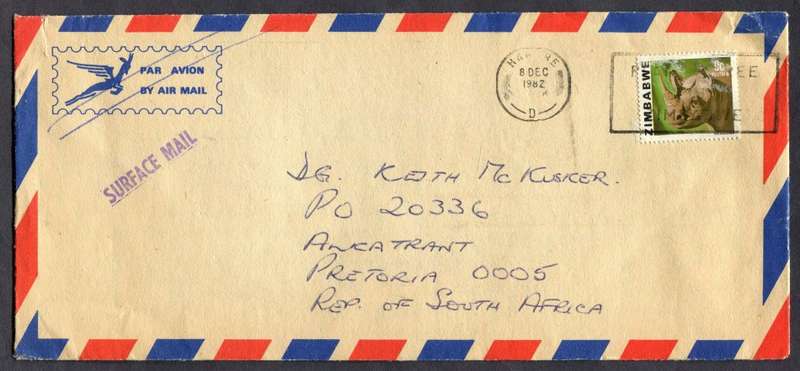 PAR AVION
BY AIR MAIL
SURFACE MAIL
HARARE
8 DEC
1982
D
ZIMBABWE
9c
DG. KEITH MCKUSKER.
PO 20336
ALKATRANT
PRETORIA 0005
REP. OF SOUTH AFRICA